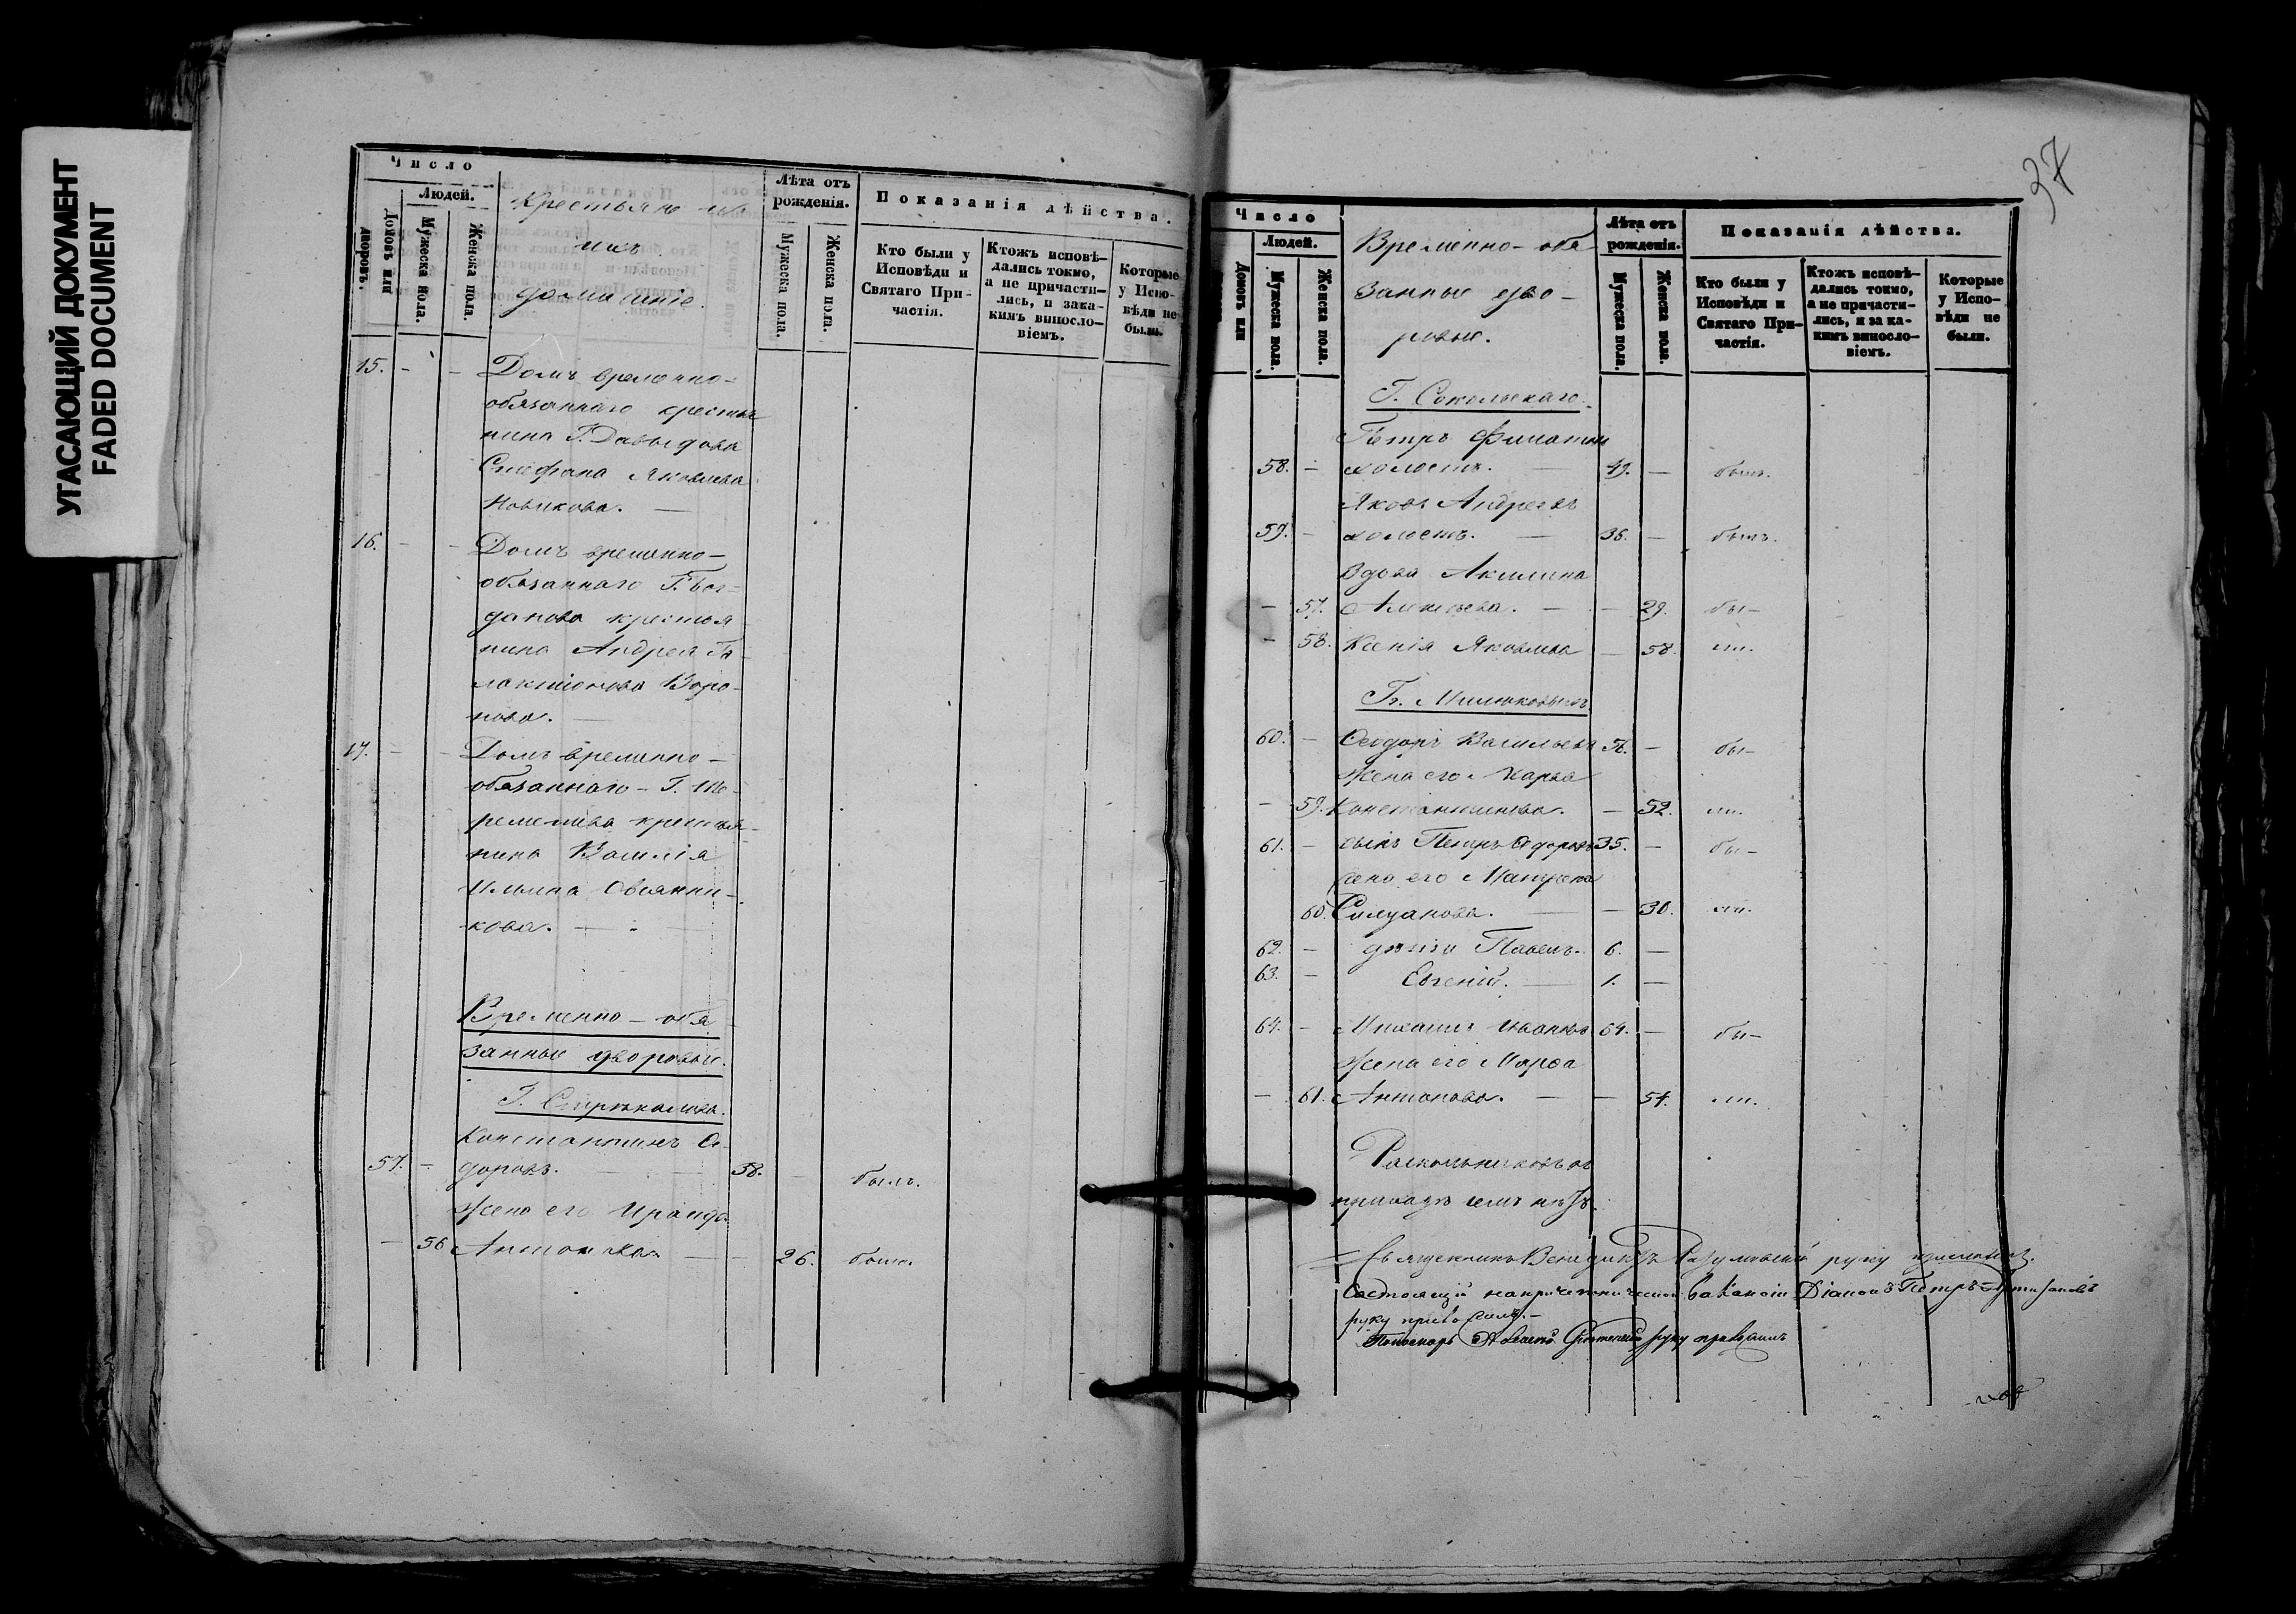 УГАСАЮЩИЙ ДОКУМЕНТ
FADED DOCUMENT
Число
Людей.
Домовъ или дворовъ.
Мужеска пола.
Женска пола.
Крестьяне и
ихъ
домашніе.
Лѣта отъ
рожденія.
Мужеска пола.
Женска пола.
Показанія дѣйства.
Кто были у
Исповѣди и
Святаго При-
частія.
Ктожъ исповѣ-
дались токмо,
а не причасти-
лись, и зака-
кимъ виносло-
віемъ.
Которые
у Испо-
вѣди не
были.
15. - - Домъ временно-
обязаннаго крестья
нина Г. Давыдова
Стефана Яковлева
Новикова. —
16. - - Домъ временно-
обязаннаго Г. Бог-
данова крестья
нина Андрея Га-
лактіонова Воро-
нова. —
17. - - Домъ временно-
обязаннаго - Г. Ше-
реметева крестья-
нина Василія
Ильина Овчинни-
кова. —
Временно - обя
занные дворовые.
Г. Стрекалова.
Константинъ Ѳе-
57. - доровъ. 58. - былъ.
Жена его Ираида
— 56 Антонова — — 26. была.
37
Число
Людей.
Домовъ или
Мужеска пола.
Женска пола.
Временно - обя
занные дво-
ровые.
Лѣта отъ
рожденія.
Мужеска пола.
Женска пола.
Показанія дѣйства.
Кто были у
Исповѣди и
Святаго При-
частія.
Ктожъ исповѣ-
дались токмо,
а не причасти-
лись, и за ка-
кимъ виносло-
віемъ.
Которые
у Испо-
вѣди не
были.
Г. Сокольскаго.
Петръ
58. - холостъ. — 49. — былъ.
Яковъ Андреевъ
59. - холостъ. — 36. — былъ.
Вдова Акилина
— 57. — — 29. бы-
— 58. Ксенія Яковлева — 58. ли.
Гг. Милюковыхъ
60. - Ѳеодоръ Васильевъ — бы-
Жена его Марѳа
— 59. Константинова. — 52. ли.
61. - сынъ Петръ Ѳедоровъ 35. — бы-
жена его Матрена
60. Силуанова. — — 30. ли.
62. - дѣти Павелъ. 6. —
63. - Евгеній. — 1. —
64. - Михаилъ Ивановъ 64. — бы-
Жена его Марѳа
— 61. Антонова. — — 54. ли.
Раскольниковъ въ
приходѣ семъ нѣтъ.
Священникъ Венедиктъ Разумовскій руку приложилъ.
Состоящій на причетнической ваканіи Діаконъ Петръ
руку приложилъ.-
Пономарь руку приложилъ